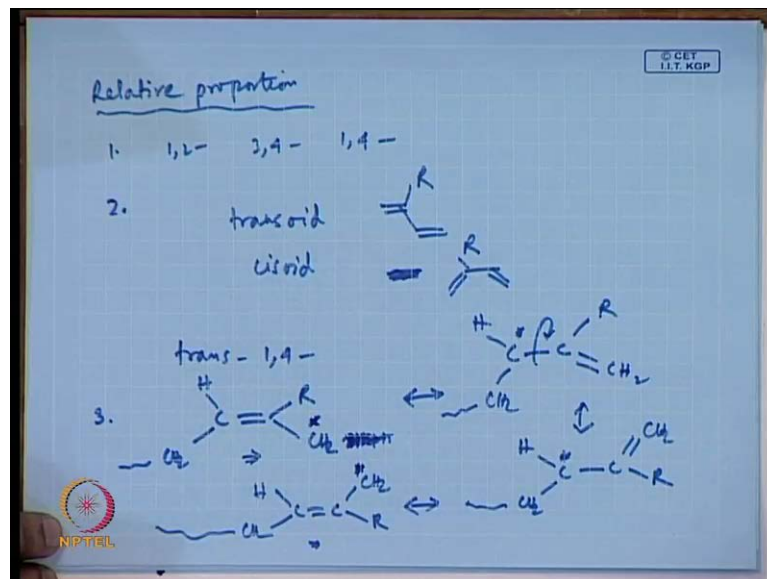 © CET
I.I.T. KGP
Relative proportion
1. 1,2- 3,4- 1,4-
2. transoid R
cisoid R
trans - 1,4-
3. H C = C R CH2 * CH2 ⇒ ↔ H C * C R CH2 CH2
↕
H C = C * CH2 R CH2 ↔ H C * C CH2 R CH2
NPTEL